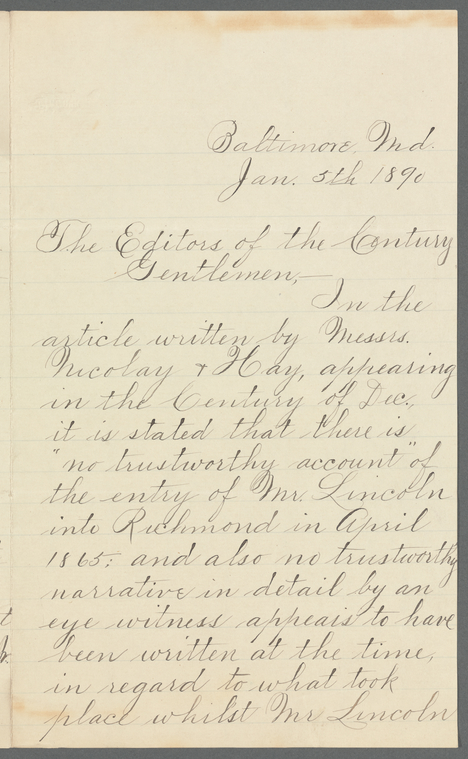 Baltimore, Md.
Jan. 5th 1890
The Editors of the Century
Gentlemen,—
In the
article written by Messrs.
Nicolay & Hay, appearing
in the Century of Dec.,
it is stated that there is
"no trustworthy account" of
the entry of Mr. Lincoln
into Richmond in April
1865; and also no trustworthy
narrative in detail by an
eye witness appears to have
been written at the time,
in regard to what took
place whilst Mr Lincoln